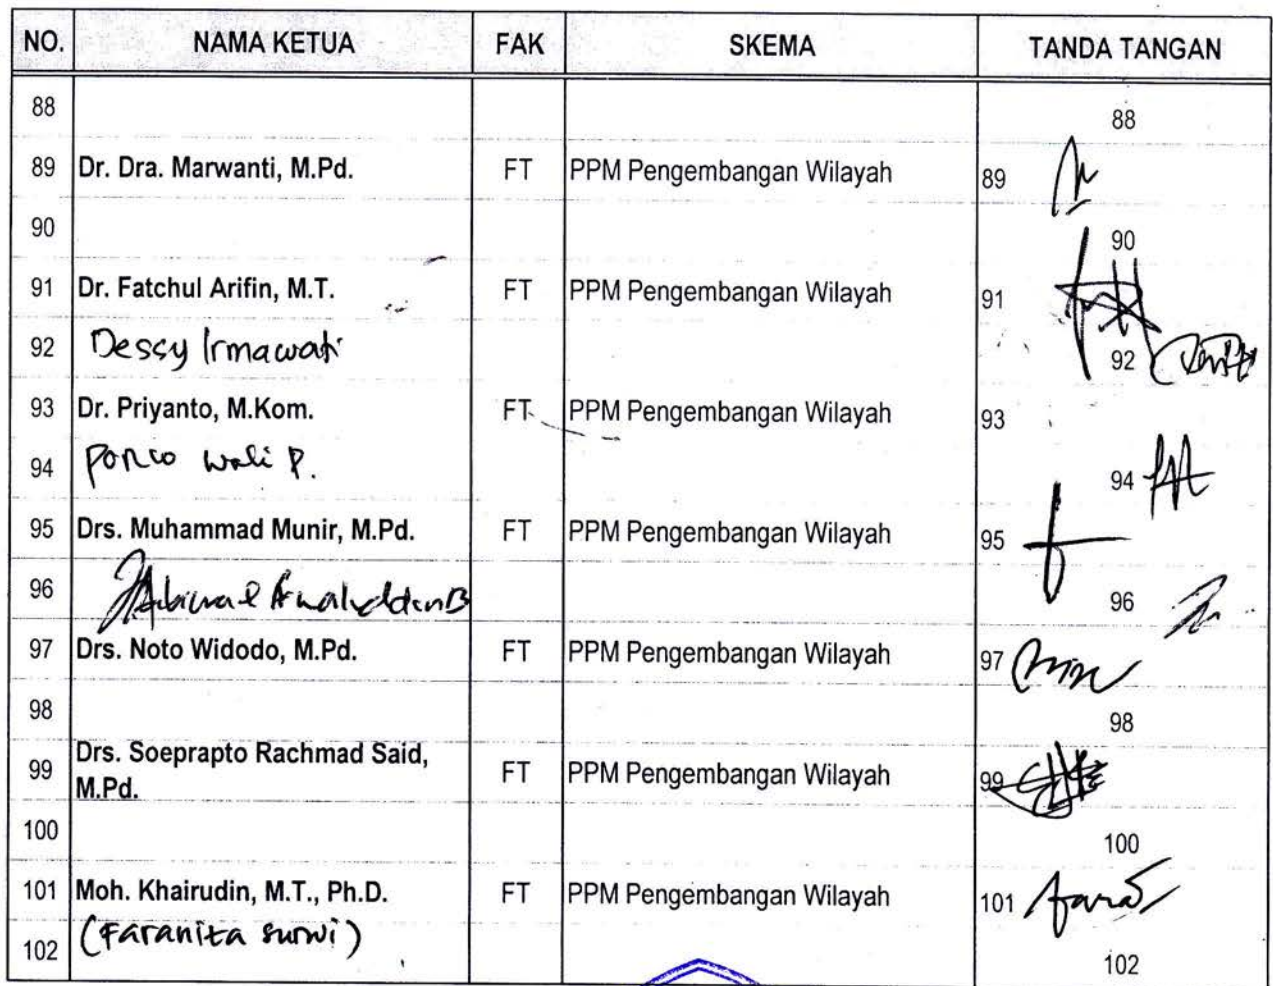 NO. NAMA KETUA FAK SKEMA TANDA TANGAN
88 88
89 Dr. Dra. Marwanti, M.Pd. FT PPM Pengembangan Wilayah 89
90 90
91 Dr. Fatchul Arifin, M.T. FT PPM Pengembangan Wilayah 91
92 Dessy Irmawati 92
93 Dr. Priyanto, M.Kom. FT PPM Pengembangan Wilayah 93
94 Ponco Wali P. 94
95 Drs. Muhammad Munir, M.Pd. FT PPM Pengembangan Wilayah 95
96 96
97 Drs. Noto Widodo, M.Pd. FT PPM Pengembangan Wilayah 97
98 98
99 Drs. Soeprapto Rachmad Said, M.Pd. FT PPM Pengembangan Wilayah 99
100 100
101 Moh. Khairudin, M.T., Ph.D. FT PPM Pengembangan Wilayah 101
102 (Faranita Surwi) 102